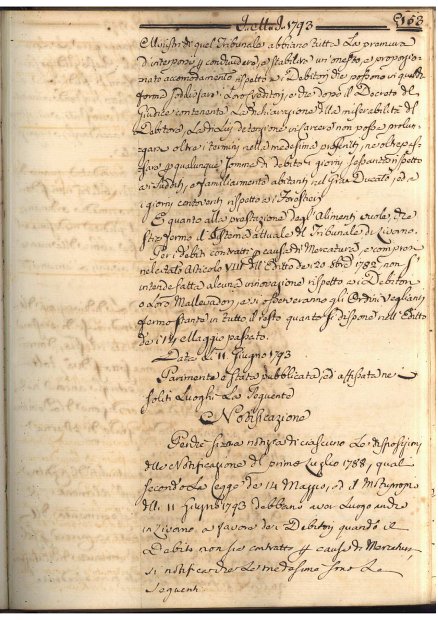 Della de 1793 163
Ministri di quel Tribunale abbiano tutta la premura
d'interporsi p condurre, o stabilire un'onesto, e proporzio-
nato accomodamento rispetto a i Debitori che possono in qualche
forma sodisfare i loro Creditori, e che dopo il Decreto del
Giudice contenente la dichiarazione della miserabilità del
Debitore, la di lui detenzione in carcere non possa prolun-
garsi oltre i termini nella medesima prefissi, ne oltrepas-
sare p qualunque somma di debito i giorni sessanta rispetto
a i Sudditi, o familiarmente abitanti nel Gran Ducato, ed a
i giorni centoventi rispetto a i Forestieri
E quanto alla prestazione degl'Alimenti vuole, che
stia fermo il sistema attuale del Tribunale di Livorno.
Per i debiti contratti p causa di Mercatura, e compresi
nel citato Articolo VIII dell'Editto de 20 8bre 1782 non s'
intende fatta alcuna innovazione rispetto a i Debitori
o loro Mallevadori, e si osserveranno gli Ordini Veglianti
fermo stante in tutto il resto quanto si dispone nell'Editto
de i Maggio passato.
Data li 11 Giugno 1793
Parimente è stata pubblicata, ed affissata ne
soliti Luoghi la seguente
Notificazione
Perchè sia a notizia di ciascuno le disposizioni
della Notificazione del primo Luglio 1788, qual
secondo la Legge de 14 Maggio, ed il Motuproprio
dell 11 Giugno 1793 debbano aver luogo anche
in Livorno a favore de i Debitori quando il
Debito non sia contratto p causa di Mercatura
si notifica che le medesime sono le
seguenti